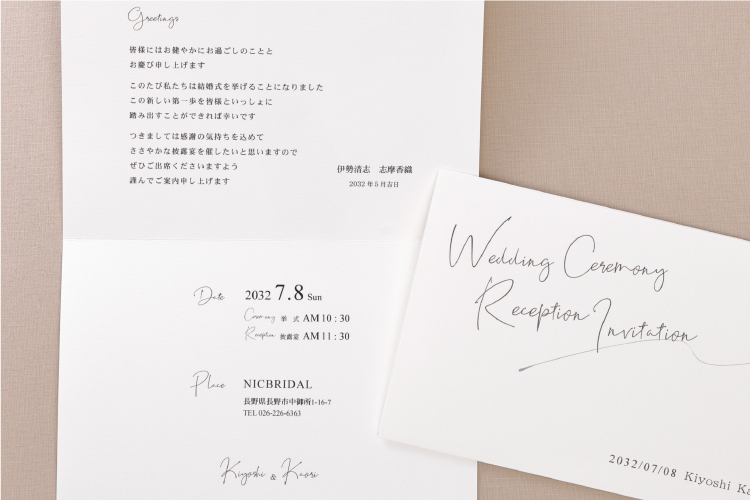 Greetings
皆様にはお健やかにお過ごしのことと
お慶び申し上げます
このたび私たちは結婚式を挙げることになりました
この新しい第一歩を皆様といっしょに
踏み出すことができれば幸いです
つきましては感謝の気持ちを込めて
ささやかな披露宴を催したいと思いますので
ぜひご出席くださいますよう
謹んでご案内申し上げます
伊勢清志 志摩香織
2032年5月吉日
Date 2032 7.8 Sun
Ceremony 挙 式 AM 10:30
Reception 披露宴 AM 11:30
Place NICBRIDAL
長野県長野市中御所1-16-7
TEL 026-226-6363
Kiyoshi & Kaori
Wedding Ceremony
Reception Invitation
2032/07/08 Kiyoshi Ka